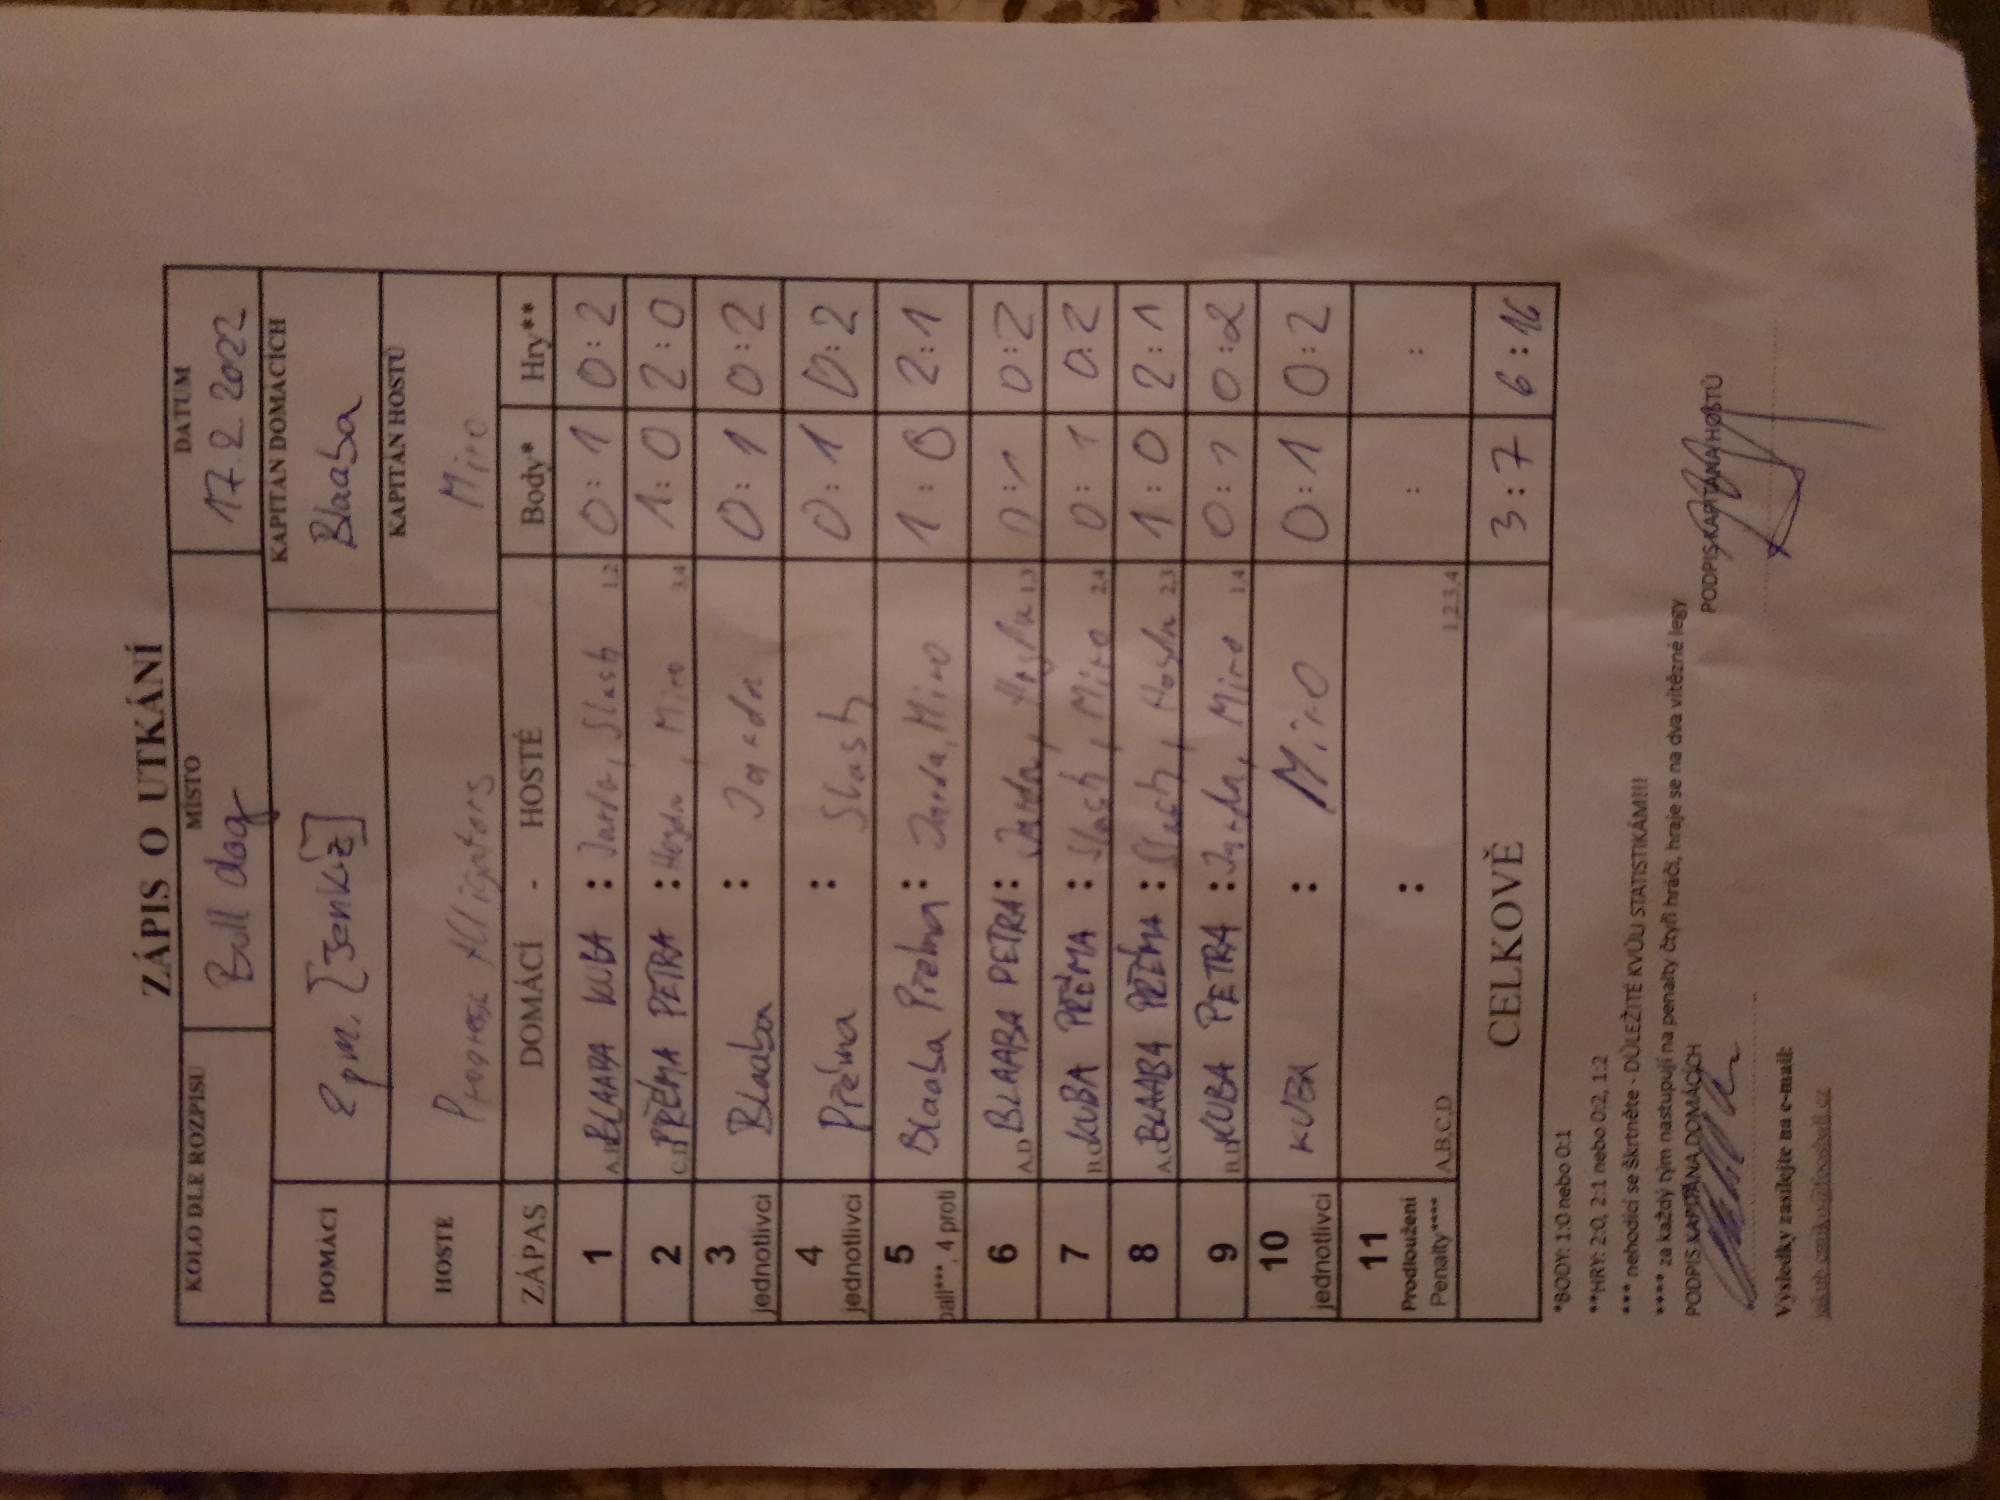 ZÁPIS O UTKÁNÍ
KOLO DLE ROZPISU MÍSTO DATUM
Bull dog 17.2.2022
DOMÁCÍ 2pm. [Jenkiz] KAPITÁN DOMÁCÍCH
Blaaba
HOSTÉ Progress Alligators KAPITÁN HOSTŮ
Miro
ZÁPAS DOMÁCÍ - HOSTÉ Body* Hry**
1 BLAABA KUBA : Jarda, Slash 1.2 0:1 0:2
2 PŘÉMA PETRA : Hogdn, Miro 3.4 1:0 2:0
3 jednotlivci Blaaba : Jarda 0:1 0:2
4 jednotlivci Přéma : Slash 0:1 0:2
5 ball***, 4 proti Blaaba Přéma : Jarda, Miro 1:0 2:1
6 A.D BLAABA PETRA : Jarda, 1.3 0:1 0:2
7 B.C KUBA PŘÉMA : Slash, Miro 2.4 0:1 0:2
8 A.C BLAABA PŘÉMA : Slash, 2.3 1:0 2:1
9 B.D KUBA PETRA : Jarda, Miro 1.4 0:1 0:2
10 jednotlivci KUBA : Miro 0:1 0:2
11 Prodloužení Penalty**** A,B,C,D : 1,2,3,4 : :
CELKOVĚ 3:7 6:16
*BODY: 1:0 nebo 0:1
**HRY: 2:0, 2:1 nebo 0:2, 1:2
*** nehodící se škrtněte - DŮLEŽITÉ KVŮLI STATISTIKÁM!!!!
**** za každý tým nastupují na penalty čtyři hráči, hraje se na dva vítězné legy
PODPIS KAPITÁNA DOMÁCÍCH PODPIS KAPITÁNA HOSTŮ
Výsledky zasílejte na e-mail: